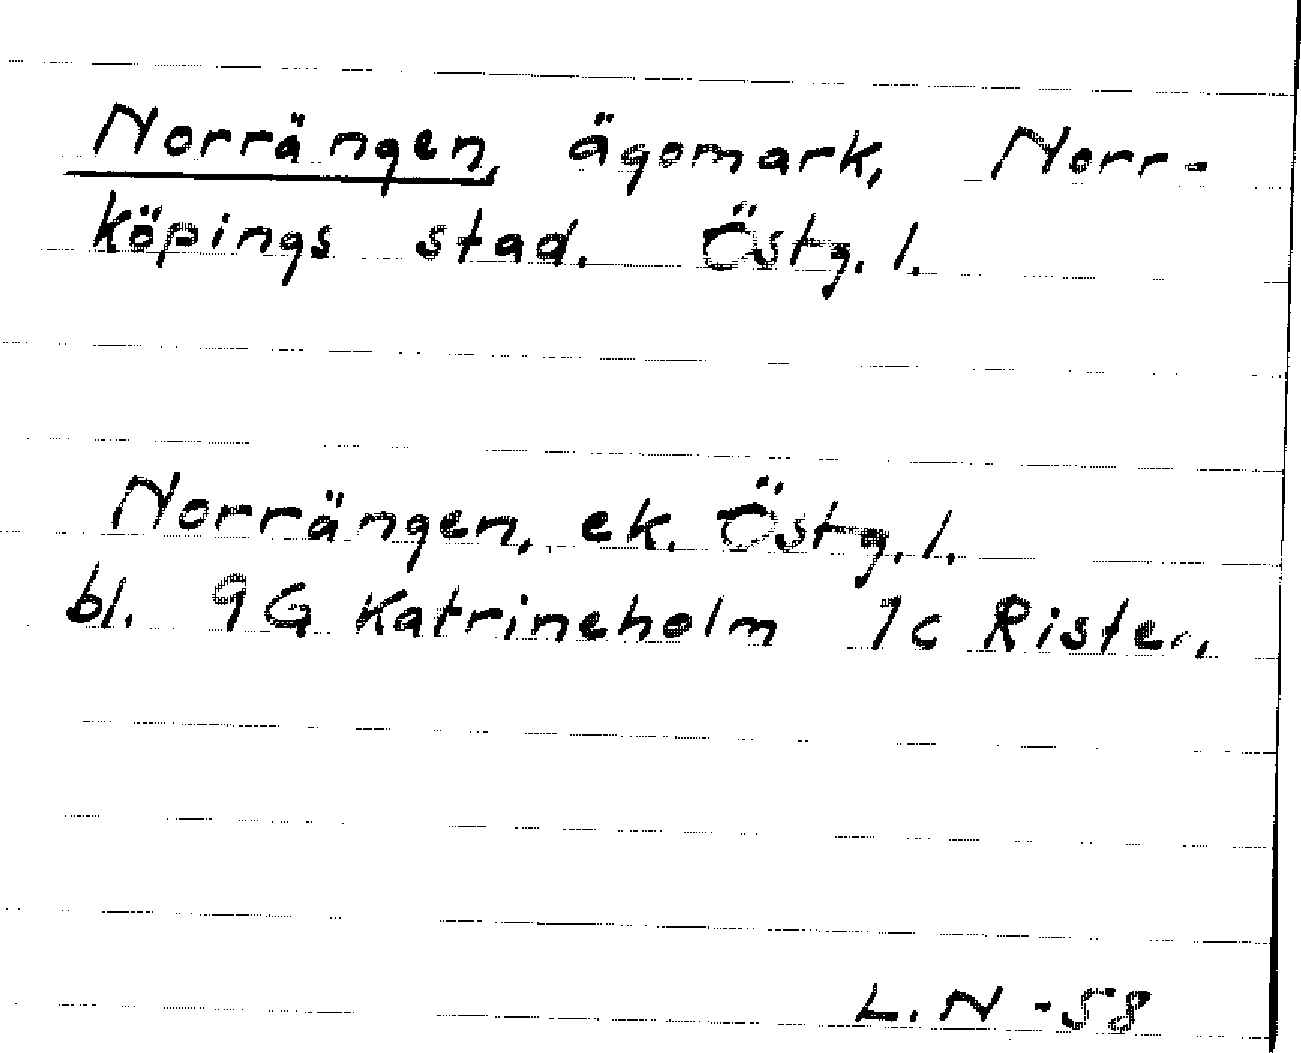 Norrängen, ägomark, Norr-
köpings stad. Östg. l.
Norrängen, ek. Östg. l.
bl. 9G Katrineholm 1c Risten.
L. N -58